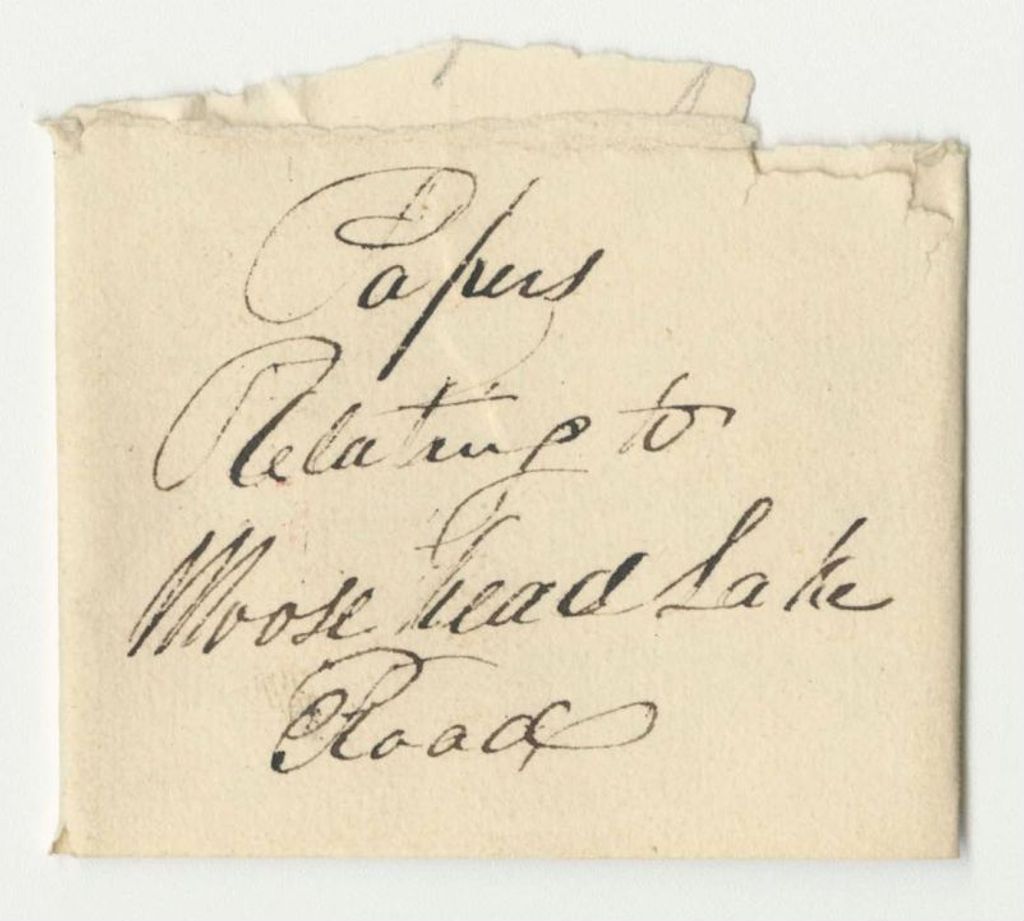 Papers
Relating to
Moose head Lake
Road